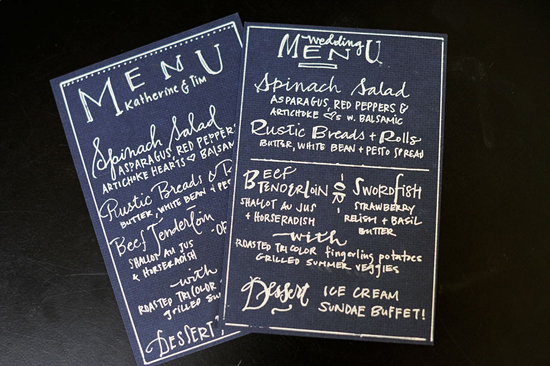 MENU
Katherine & Tim
Spinach Salad
ASPARAGUS, RED PEPPERS
ARTICHOKE HEARTS ♡ BALSAM
Rustic Breads &
BUTTER, WHITE BEAN + PE
Beef Tenderloin
-OR
SHALLOT AU JUS
& HORSERADISH
with
ROASTED TRICOLOR
grilled su
DESSERT
wedding
MENU
Spinach Salad
ASPARAGUS, RED PEPPERS &
ARTICHOKE ♡'s w. BALSAMIC
Rustic Breads + Rolls
BUTTER, WHITE BEAN + PESTO SPREAD
BEEF
TENDERLOIN
SHALLOT AU JUS
+ HORSERADISH
OR
SWORDFISH
STRAWBERRY
RELISH + BASIL
BUTTER
with
ROASTED TRICOLOR fingerling potatoes
GRILLED SUMMER VEGGIES
Dessert
ICE CREAM
SUNDAE BUFFET!